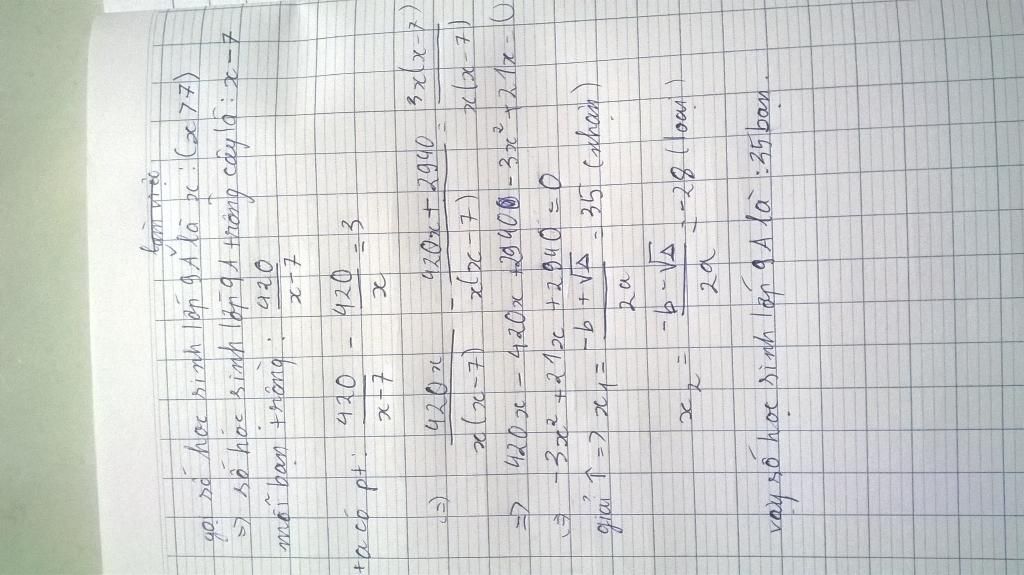 gọi số học sinh lớp 9A là x : (x > 7)
=> số học sinh lớp 9A trồng cây là : x - 7
mỗi bạn trồng : 420/(x-7)
ta có pt : 420/(x-7) - 420/x = 3
<=> 420x/(x(x-7)) - (420x + 2940)/(x(x-7)) = 3x(x-7)/(x(x-7))
=> 420x - 420x + 2940 - 3x² + 21x = 0
<=> -3x² + 21x + 2940 = 0
giải ↑ => x₁ = (-b + √Δ)/2a = 35 (nhận)
x₂ = (-b - √Δ)/2a = -28 (loại)
vậy số học sinh lớp 9A là : 35 bạn.